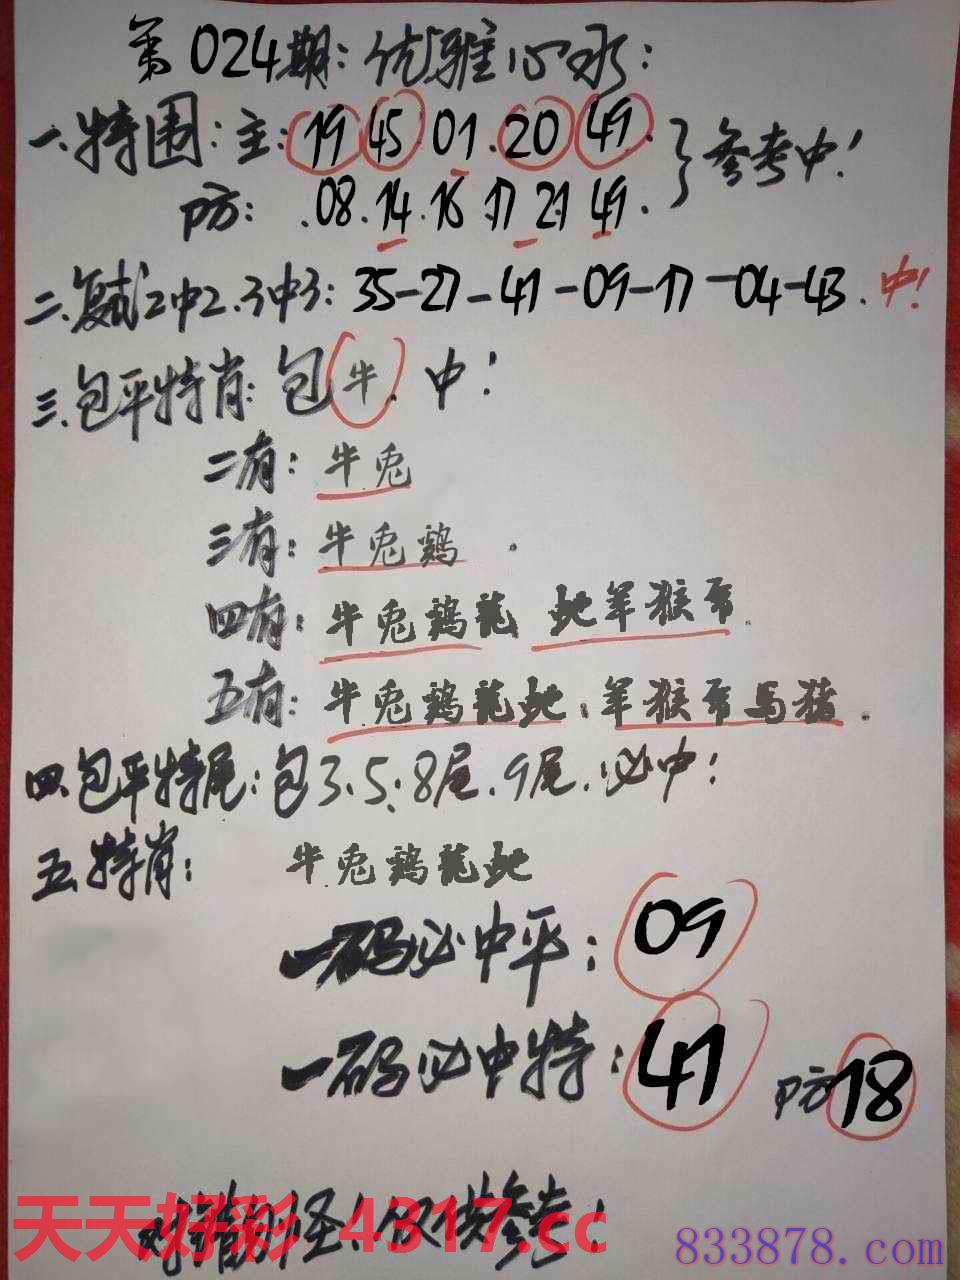 第024期:优雅心水:
一.特围:主:19 45 01.20 49.}参考中!
防:.08.14.16.17 21 49.
二.复试2中2.3中3:35-27-41-09-17-04-43.中!
三.包平特肖:包牛.中!
二有:牛兔
三有:牛兔鷄.
四有:牛兔鷄龍 蛇羊猴
五有:牛兔鷄龍蛇:羊猴 馬猪.
四.包平特尾:包3.5.8尾.9尾.必中!
五.特肖:牛兔鷄龍蛇
一码必中平:09
一码必中特:41 防18
仅供参考!
天天好彩 4317.cc
833878.com